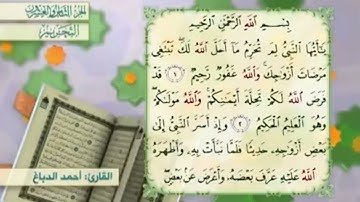 الجزء الثامن والعشرون
التحريم
بِسْمِ اللَّهِ الرَّحْمَٰنِ الرَّحِيمِ
يَٰٓأَيُّهَا النَّبِيُّ لِمَ تُحَرِّمُ مَآ أَحَلَّ اللَّهُ لَكَ تَبْتَغِي
مَرْضَاتَ أَزْوَٰجِكَ وَاللَّهُ غَفُورٌ رَّحِيمٌ ١ قَدْ
فَرَضَ اللَّهُ لَكُمْ تَحِلَّةَ أَيْمَٰنِكُمْ وَاللَّهُ مَوْلَىٰكُمْ
وَهُوَ الْعَلِيمُ الْحَكِيمُ ٢ وَإِذْ أَسَرَّ النَّبِيُّ إِلَىٰ
بَعْضِ أَزْوَٰجِهِ حَدِيثًا فَلَمَّا نَبَّأَتْ بِهِ وَأَظْهَرَهُ
اللَّهُ عَلَيْهِ عَرَّفَ بَعْضَهُ وَأَعْرَضَ عَنۢ بَعْضٍ
القارئ: أحمد الدباغ